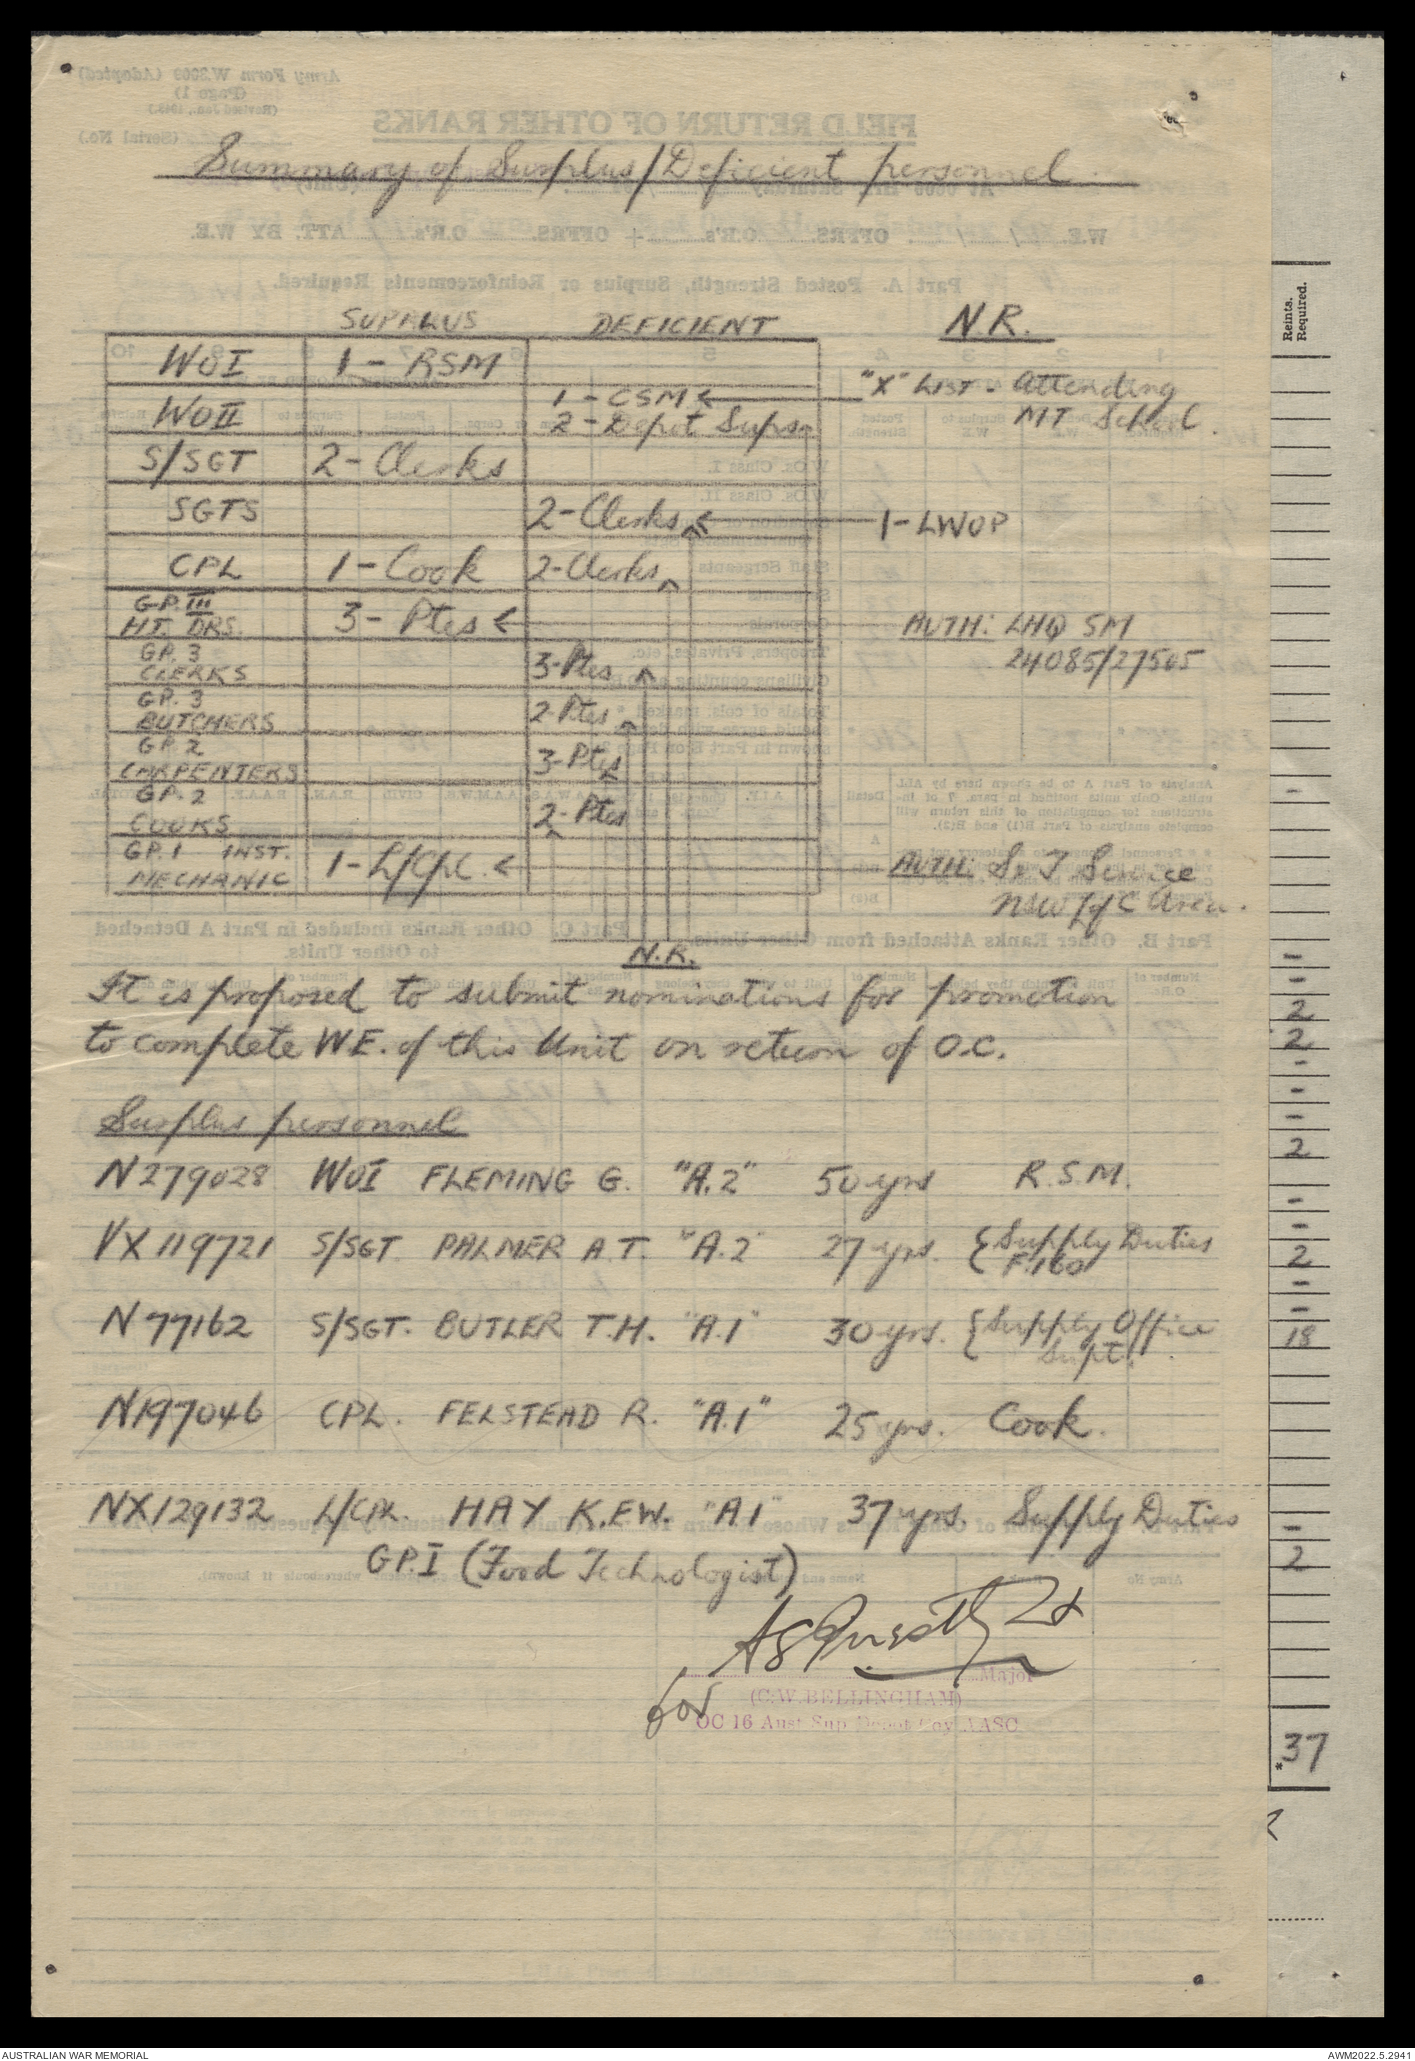 Summary of Surplus/Deficient personnel.
SUPRLUS DEFICIENT N.R.
WOI 1 - RSM
WOII 1 - CSM "X" LIST - attending
2 - Depot Supsn MT School.
S/SGT 2 - Clerks
SGTS 2 - Clerks 1 - LWOP
CPL 1 - Cook 2 - Clerks
GP. III 3 - Ptes AUTH: LHQ SM
HT. DRS. 24085/27505
GP. 3 3 - Ptes
CLERKS
GP. 3 2 - Ptes
BUTCHERS
GP. 2 3 - Ptes
CARPENTERS
GP. 2 2 - Ptes
COOKS
GP. 1 INST. 1 - L/Cpl. AUTH: S & T Service
MECHANIC NSW L of C Area.
N.R.
It is proposed to submit nominations for promotion
to complete W.E. of this Unit on return of O.C.
Surplus personnel
N279028 WOI FLEMING G. "A.2" 50 yrs R.S.M.
VX119721 S/SGT PALMER A.T. "A.2" 27 yrs. {Supply Duties
N77162 S/SGT. BUTLER T.H. "A.1" 30 yrs. {Supply Office
Supt.
N197046 CPL. FELSTEAD R. "A.1" 25 yrs. Cook.
NX129132 L/CPL. HAY K.E.W. "A.1" 37 yrs. Supply Duties
GP.I (Food Technologist)
Lt
Major
for (C.W.BELLINGHAM)
OC 16 Aust Sup Depot Coy AASC
Reints.
Required.
-
-
-
2
2
-
-
-
2
-
-
2
-
-
18
-
2
*37
AUSTRALIAN WAR MEMORIAL AWM2022.5.2941